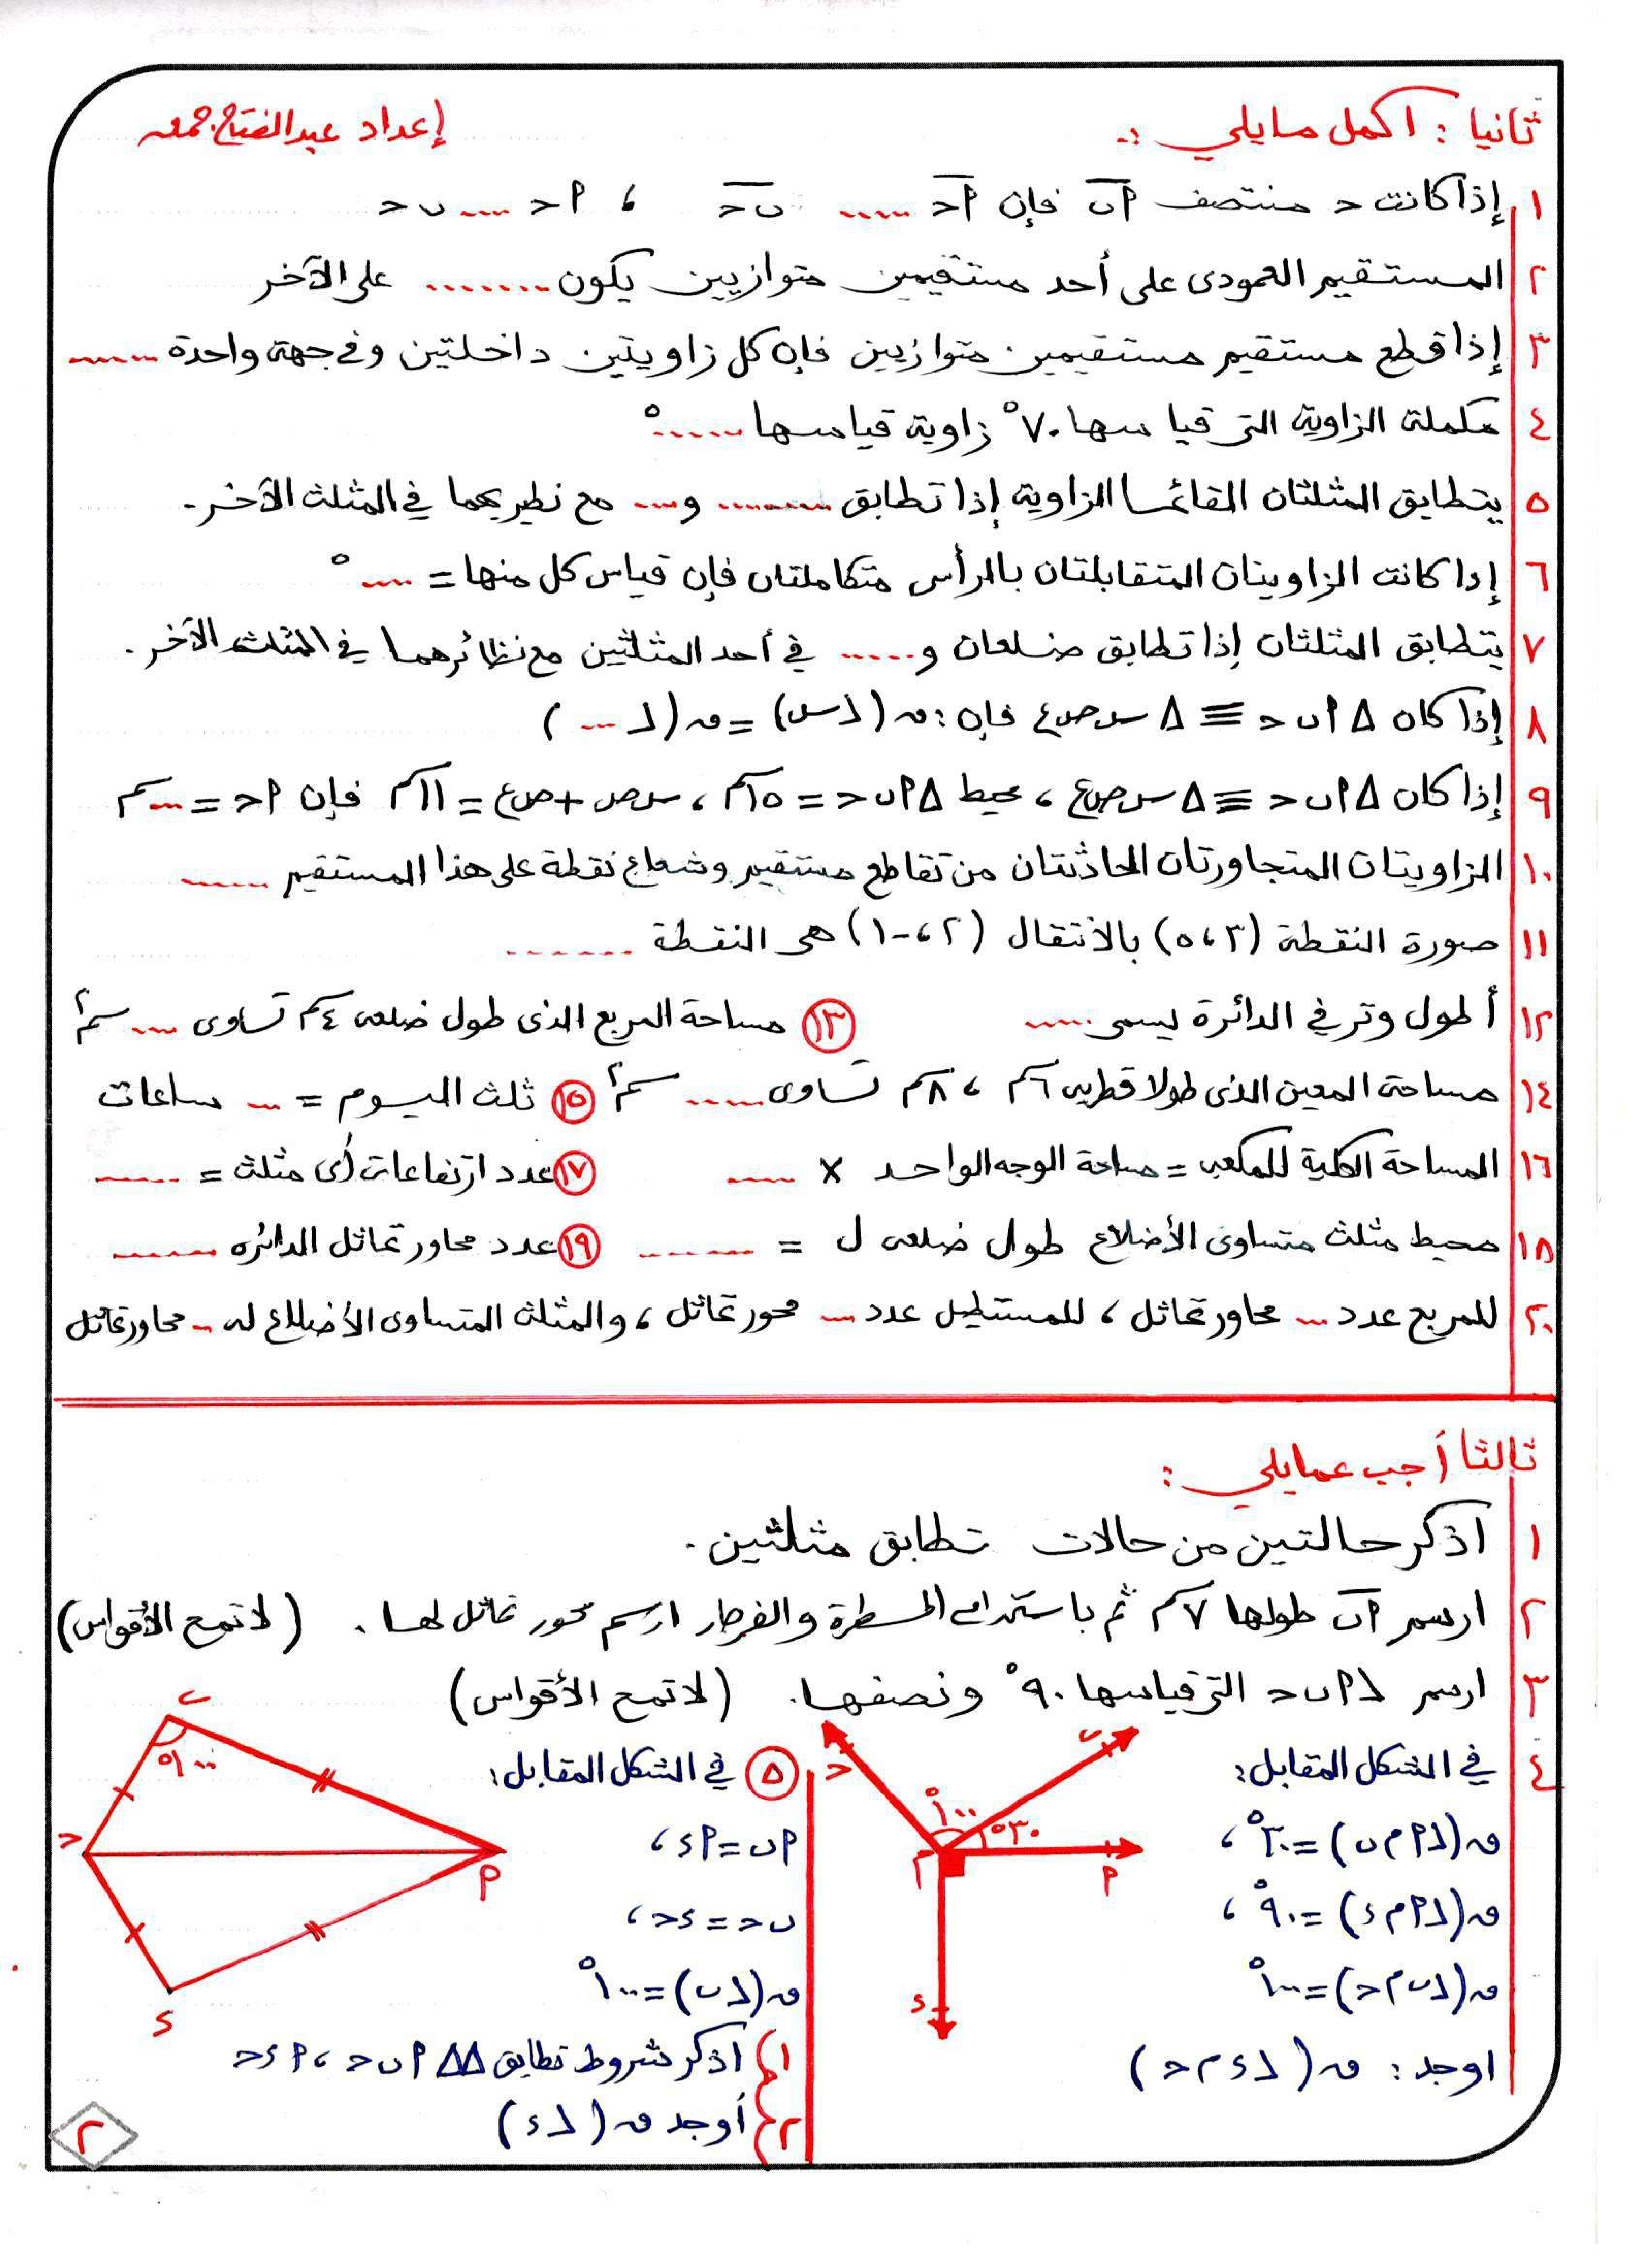 ثانيا : أكمل مايلي :-
إعداد عبدالفتاح جمعه
١ إذا كانت ح منتصف أب فإن أح ..... بح ، أح ..... ب ح
٢ المستقيم العمودى على أحد مستقيمين متوازيين يكون ........ على الآخر
٣ إذا قطع مستقيم مستقيمين متوازيين فإن كل زاويتين داخلتين وفى جهة واحدة ......
٤ مكملة الزاوية التى قياسها ٧٠° زاوية قياسها ......°
٥ يتطابق المثلثان القائما الزاوية إذا تطابق ........ و .... مع نظيريهما في المثلث الآخر.
٦ إذا كانت الزاويتان المتقابلتان بالرأس متكاملتان فإن قياس كل منها = ....°
٧ يتطابق المثلثان إذا تطابق ضلعان و ...... في أحد المثلثين مع نظائرهما في المثلث الآخر.
٨ إذا كان Δ أ ب ح ≡ Δ س ص ع فإن : ق (∠س) = ق (∠ ... )
٩ إذا كان Δ أ ب ح ≡ Δ س ص ع ، محيط Δ أ ب ح = ١٥سم ، س ص + ص ع = ١١سم فإن أ ح = ...سم
١٠ الزاويتان المتجاورتان الحادثتان من تقاطع مستقيم وشعاع نقطة على هذا المستقيم ......
١١ صورة النقطة (٣ ، ٥) بالانتقال (٢ ، -١) هى النقطة .......
١٢ أطول وتر في الدائرة يسمى .....
١٣ مساحة المربع الذى طول ضلعه ٤سم تساوى .... سم٢
١٤ مساحة المعين الذى طولا قطريه ٦سم ، ٨سم تساوى ...... سم٢
١٥ ثلث اليوم = ... ساعات
١٦ المساحة الكلية للمكعب = مساحة الوجه الواحد × .....
١٧ عدد ارتفاعات أى مثلث = ......
١٨ محيط مثلث متساوى الأضلاع طول ضلعه ل = ........
١٩ عدد محاور تماثل الدائره .......
٢٠ للمربع عدد ... محاور تماثل ، للمستطيل عدد ... محور تماثل ، والمثلث المتساوى الأضلاع له .. محاور تماثل
ثالثا أجب عمايلي :
١ اذكر حالتين من حالات تطابق مثلثين.
٢ ارسم أب طولها ٧سم ثم باستخدام المسطرة والفرجار ارسم محور تماثل لها. (لا تمح الأقواس)
٣ ارسم ∠أ ب ح التى قياسها ٩٠° ونصفها. (لا تمح الأقواس)
٤ في الشكل المقابل:
ق (∠أ م ب) = ٣٠° ،
ق (∠أ م د) = ٩٠° ،
ق (∠ب م ح) = ١٠٠°
اوجد : ق (∠د م ح)
ب
ح
١٠٠°
٣٠°
م
أ
د
٥ في الشكل المقابل:
أب = أد ،
ب ح = د ح ،
ق (∠ب) = ١٠٠°
١) اذكر شروط تطابق ΔΔ أ ب ح ، أ د ح
٢) أوجد ق (∠د)
ب
١٠٠°
ح
أ
د
٢